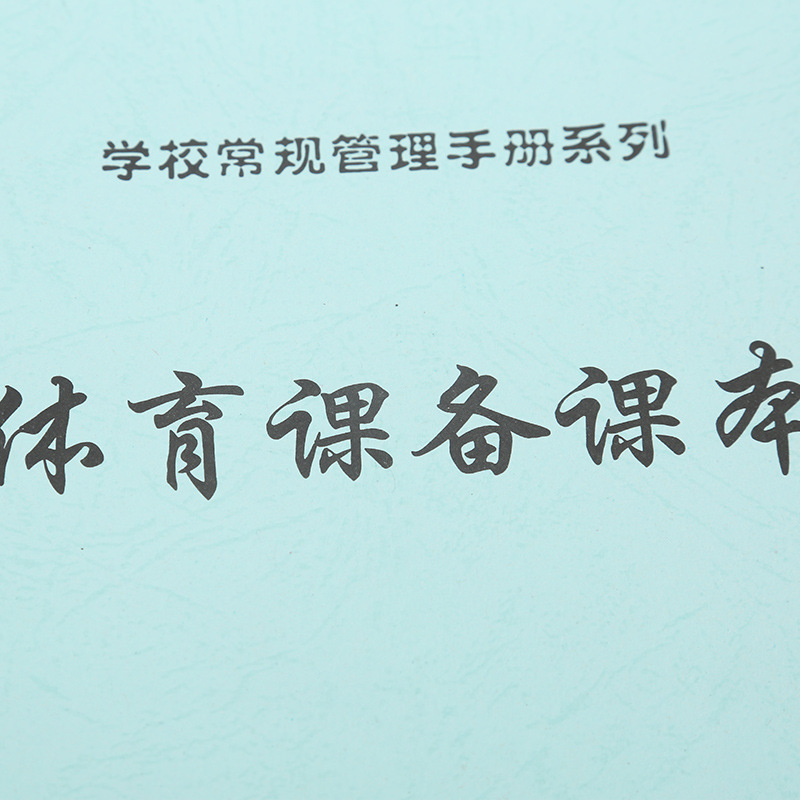 学校常规管理手册系列
体育课备课本